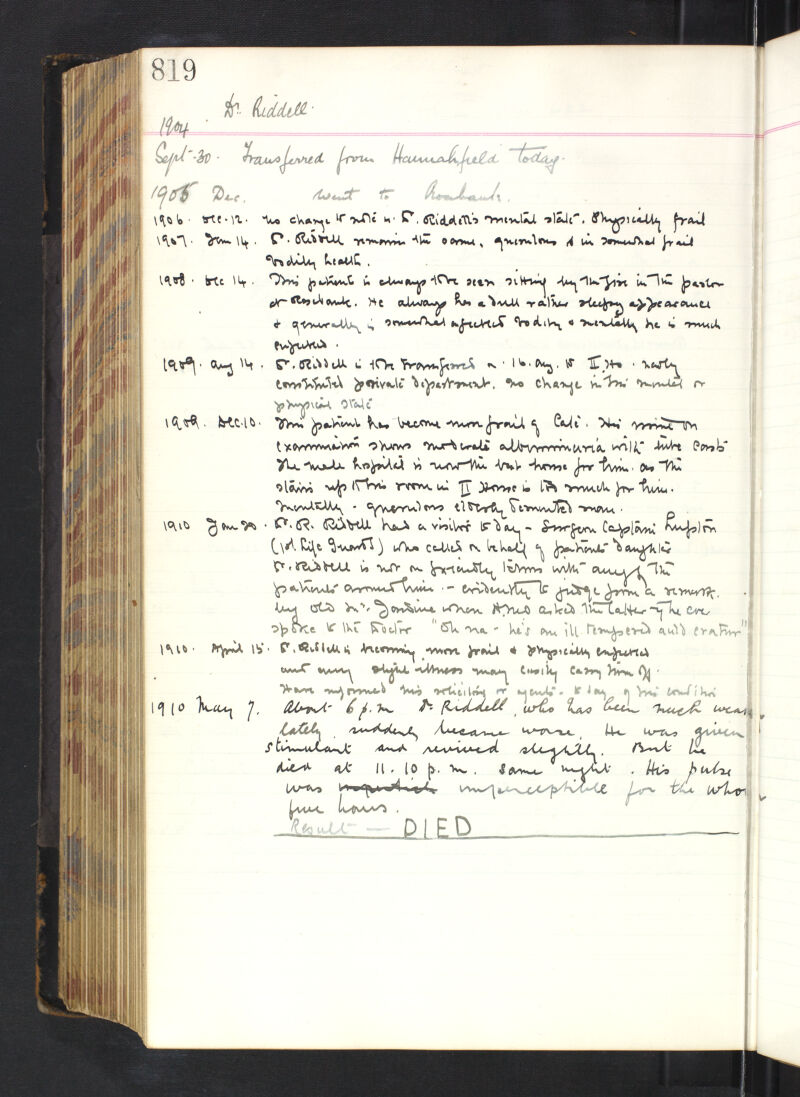 819
Dr. Riddell.
1904
Sept. 30. Transferred from Hannahfield today.
1905 Dec. went to Rosebank.
1906. Dec. 12. No change to note in Dr. Riddell's mental state. Physically frail
1907. Jan 14. Dr. Riddell remains the same, querulous & in somewhat frail
bodily health.
1908. Dec 14. This patient is always to be seen sitting by the fire in the parlor
at Rosebank. He always has a dull rather sleepy appearance
& generally is somewhat bodily & mentally he is much
enfeebled.
1909. Aug 14. Dr. Riddell is to be transferred on 16. Aug. to II Ho. newly
constituted private department. No change in his mental or
physical state
1909. Dec. 10. This patient has become more frail of late. His urine on
examination shows moderate albuminuria with tube casts
The male hospital is now the best house for him as the
stairs up to his room in II House is too much for him.
Mentally - querulous elderly demented man.
1910 Jan 20. Dr. R. Riddell had a visitor to day - Surgeon Captain
(1st Life Guards) who called on behalf of patient's daughter
Dr. Riddell is not on friendly terms with any of the
patients around him - evidently to judge from a remark
by old Mr. Jardine when asked the latter if he ever
spoke to the Doctor "Oh na - he's an ill tempered auld cratur"
1910. April 15. Dr. Riddell is becoming more frail & physically enfeebled
and any slight illness may easily carry him off.
Have informed his solicitors or agents to day of his condition
1910 May 7. About 6 p.m Dr. Riddell, who has been much weaker
lately, suddenly became worse. He was given
stimulant and revived slightly. But he
died at 11.10 p.m. same night. His pulse
was imperceptible for the whole
five hours.
Result - DIED